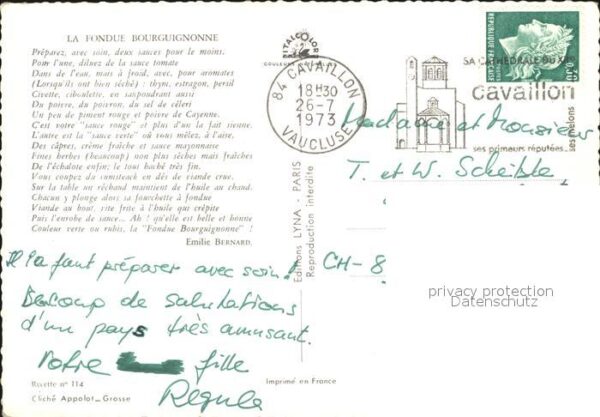 LA FONDUE BOURGUIGNONNE
Préparez, avec soin, deux sauces pour le moins.
Pour l'une, diluez de la sauce tomate
Dans de l'eau, mais à froid, avec, pour aromates
(Lorsqu'ils ont bien séché) : thym, estragon, persil
Civette, ciboulette, en saupoudrant ainsi
Du poivre, du poivron, du sel de céleri
Un peu de piment rouge et poivre de Cayenne.
C'est votre "sauce rouge" et plus d'un la fait sienne.
L'autre est la "sauce verte" où vous mêlez, à l'aise,
Des câpres, crème fraîche et sauce mayonnaise
Fines herbes (beaucoup) non plus sèches mais fraîches
De l'échalote enfin; le tout haché très fin.
Vous coupez du rumsteack en dés de viande crue.
Sur la table un réchaud maintient de l'huile au chaud.
Chacun y plonge alors sa fourchette à fondue
Viande au bout, vite frite à l'huile qui crépite
Puis l'enrobe de sauce... Ah ! qu'elle est belle et bonne
Couleur verte ou rubis, la "Fondue Bourguignonne" !
Emilie BERNARD.
Il la faut préparer avec soin!
Beaucoup de salutations
d'un pays très amusant.
Votre fille
Regula
Recette n° 114
Cliché Appolot-Grosse
Imprimé en France
ITALCOLOR
COULEURS NATURELLES
84 CAVAILLON
18H30
26-7
1973
VAUCLUSE
Editions LYNA - PARIS
Reproduction interdite
REPUBLIQUE FRANÇAISE
SA CATHÉDRALE DU
cavaillon
ses primeurs réputées
ses melons
Madame et Monsieur
T. et W. Scheible
CH-8
privacy protection
Datenschutz